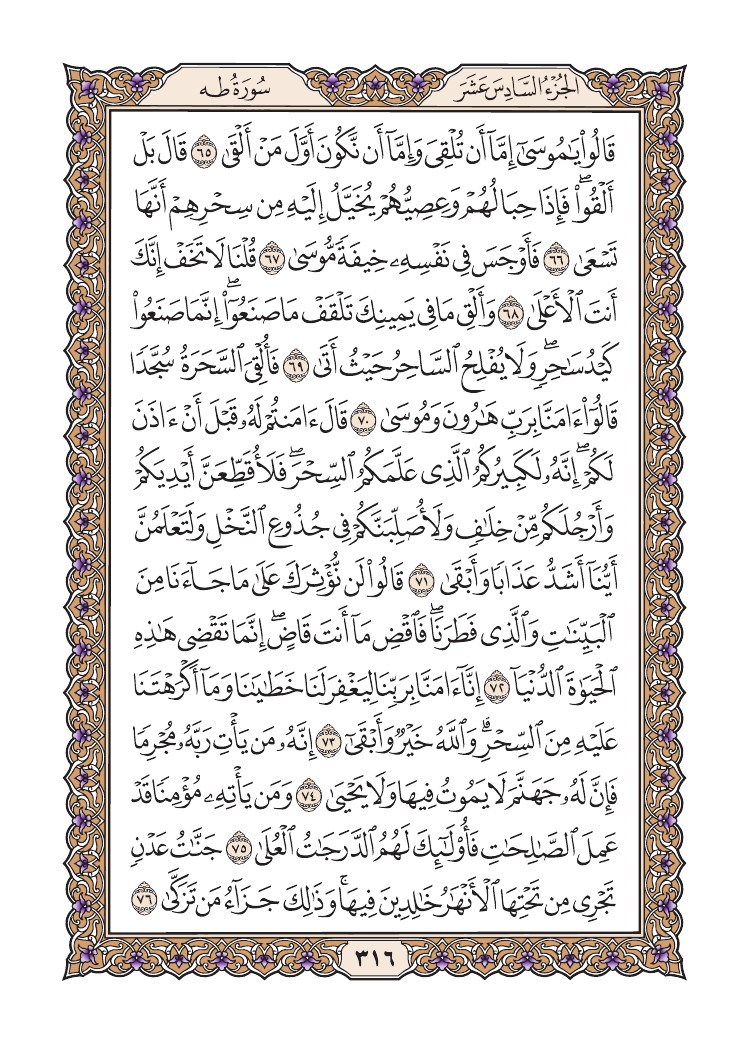 الجُزْءُ السَّادِسَ عَشَرَ
سُورَةُ طه
قَالُواْ يَٰمُوسَىٰٓ إِمَّآ أَن تُلْقِىَ وَإِمَّآ أَن نَّكُونَ أَوَّلَ مَنْ أَلْقَىٰ ٦٥ قَالَ بَلْ
أَلْقُواْۖ فَإِذَا حِبَالُهُمْ وَعِصِيُّهُمْ يُخَيَّلُ إِلَيْهِ مِن سِحْرِهِمْ أَنَّهَا
تَسْعَىٰ ٦٦ فَأَوْجَسَ فِى نَفْسِهِۦ خِيفَةً مُّوسَىٰ ٦٧ قُلْنَا لَا تَخَفْ إِنَّكَ
أَنتَ ٱلْأَعْلَىٰ ٦٨ وَأَلْقِ مَا فِى يَمِينِكَ تَلْقَفْ مَا صَنَعُوٓاْۖ إِنَّمَا صَنَعُواْ
كَيْدُ سَٰحِرٍۖ وَلَا يُفْلِحُ ٱلسَّاحِرُ حَيْثُ أَتَىٰ ٦٩ فَأُلْقِىَ ٱلسَّحَرَةُ سُجَّدًا
قَالُوٓاْ ءَامَنَّا بِرَبِّ هَٰرُونَ وَمُوسَىٰ ٧٠ قَالَ ءَامَنتُمْ لَهُۥ قَبْلَ أَنْ ءَاذَنَ
لَكُمْۖ إِنَّهُۥ لَكَبِيرُكُمُ ٱلَّذِى عَلَّمَكُمُ ٱلسِّحْرَۖ فَلَأُقَطِّعَنَّ أَيْدِيَكُمْ
وَأَرْجُلَكُم مِّنْ خِلَٰفٍ وَلَأُصَلِّبَنَّكُمْ فِى جُذُوعِ ٱلنَّخْلِ وَلَتَعْلَمُنَّ
أَيُّنَآ أَشَدُّ عَذَابًا وَأَبْقَىٰ ٧١ قَالُواْ لَن نُّؤْثِرَكَ عَلَىٰ مَا جَآءَنَا مِنَ
ٱلْبَيِّنَٰتِ وَٱلَّذِى فَطَرَنَاۖ فَٱقْضِ مَآ أَنتَ قَاضٍۖ إِنَّمَا تَقْضِى هَٰذِهِ
ٱلْحَيَوٰةَ ٱلدُّنْيَآ ٧٢ إِنَّآ ءَامَنَّا بِرَبِّنَا لِيَغْفِرَ لَنَا خَطَٰيَٰنَا وَمَآ أَكْرَهْتَنَا
عَلَيْهِ مِنَ ٱلسِّحْرِۗ وَٱللَّهُ خَيْرٌ وَأَبْقَىٰٓ ٧٣ إِنَّهُۥ مَن يَأْتِ رَبَّهُۥ مُجْرِمًا
فَإِنَّ لَهُۥ جَهَنَّمَ لَا يَمُوتُ فِيهَا وَلَا يَحْيَىٰ ٧٤ وَمَن يَأْتِهِۦ مُؤْمِنًا قَدْ
عَمِلَ ٱلصَّٰلِحَٰتِ فَأُوْلَٰٓئِكَ لَهُمُ ٱلدَّرَجَٰتُ ٱلْعُلَىٰ ٧٥ جَنَّٰتُ عَدْنٍ
تَجْرِى مِن تَحْتِهَا ٱلْأَنْهَٰرُ خَٰلِدِينَ فِيهَاۚ وَذَٰلِكَ جَزَآءُ مَن تَزَكَّىٰ ٧٦
٣١٦